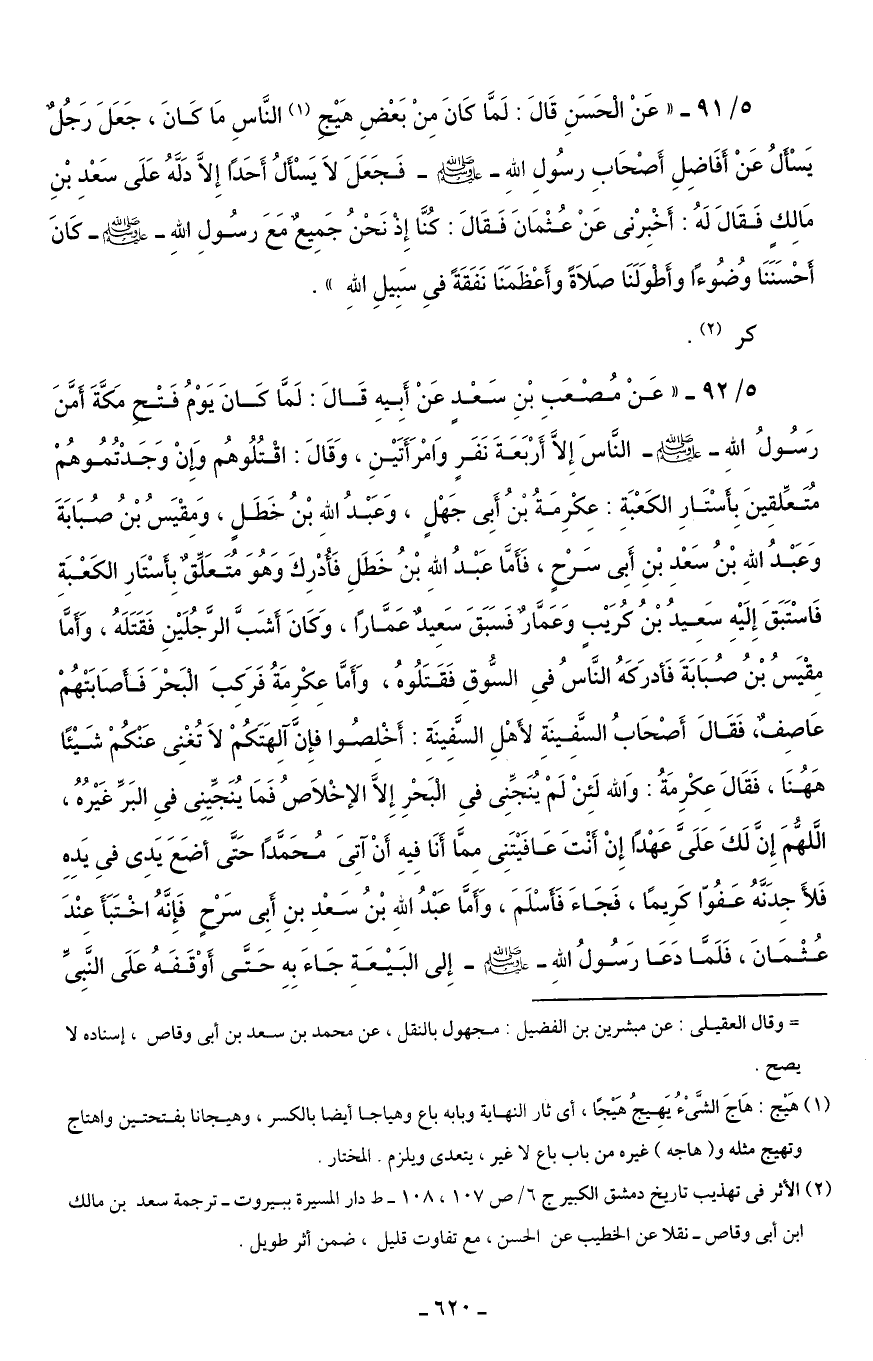 ٥/ ٩١ ـ « عَنْ الْحَسَنِ قَالَ : لَمَّا كَانَ مِنْ بَعْضِ هَيْجِ (١) النَّاسِ مَا كَـانَ ، جَعَلَ رَجُلٌ
يَسْأَلُ عَنْ أَفَاضِلِ أَصْحَابِ رسُولِ الله ـ ﷺ ـ فَـجَعَلَ لاَ يَسْأَلُ أَحَدًا إِلاَّ دَلَّهُ عَلَى سَعْدِ بْنِ
مَالِكٍ فَـقَالَ لَهُ : أَخْبِرْنِى عَنْ عُـثْمَانَ فَـقَالَ : كُنَّا إِذْ نَحْنُ جَمِيعٌ مَعَ رسُـولِ الله ـ ﷺ ـ كَانَ
أَحْسَنَنَا وضُوءًا وأَطْولَنَا صَلاَةً وأَعْظَمَنَا نَفَقَةً فى سَبِيلِ الله » .
كر (٢) .
٥/ ٩٢ ـ « عَـنْ مُـصْعَبِ بْنِ سَعْـدٍ عَنْ أَبِـيهِ قَـالَ : لَمَّا كَـانَ يَوْمُ فَـتْـحِ مَكَّةَ أَمَّنَ
رَسُـولُ الله ـ ﷺ ـ النَّاسَ إِلاَّ أَرْبَعَـةَ نَفَـرٍ وَامْرَأَتَيْـنِ ، وَقَالَ : اقْـتُلُوهُم وَإِنْ وَجَـدْتُمُـوهُمْ
مُتَـعَلِّقِينَ بِأَسْتَـارِ الكَعْبَةِ : عِكْرِمَـةُ بْنُ أَبِى جَهْلٍ ، وَعَبْـدُ الله بْنُ خَطَلٍ ، ومَقْيَسُ بْنُ صُبَابَةَ
وَعَبْـدُ الله بْنُ سَعْدِ بْنِ أَبِى سَـرْحٍ ، فَأَمَّا عَبْـدُ الله بْنُ خَطَلٍ فَأُدْرِكَ وَهُوَ مُتَـعَلِّقٌ بأَسْتَارِ الكَعْـبَةِ
فَاسْتَبَقَ إِلَيْهِ سَعِـيدُ بْنُ كُرَيْبٍ وَعَمَّارٌ فَسَبَقَ سَعِيدٌ عَمَّـارًا ، وَكَانَ أَشَبَّ الرَّجُلَيْنِ فَقَتَلَهُ ، وَأَمَّا
مِقْيَسُ بْنُ صُـبَابَةَ فَأدرَكَهُ النَّاسُ فى السُّوقِ فَقَـتَلُوهُ ، وَأَمَّا عِكْرِمَةُ فَرَكِبَ الْبَحْرَ فَـأَصَابَتْهُمْ
عَاصِفٌ، فَقَـالَ أَصْحَابُ السَّفِـينَةِ لأَهْلِ السَّفِينَةِ : أَخْلِصُـوا فإِنَّ آلِهَتَكُمْ لاَ تُغْنِى عَنْكُمْ شَـيْئًا
هَهُنَا ، فَقَالَ عِكْرِمَةُ : وَالله لَئِنْ لَمْ يُنَجِّنِى فى الْبَحْرِ إِلاَّ الإِخْلاَصُ فَمَا يُنَجِّينِى فى البَرِّ غَيْرُهُ ،
اللَّهُمَّ إِنَّ لَكَ عَلَىَّ عَهْدًا إِنْ أَنْتَ عَـافَيْتَنِى مِمَّا أَنَا فِيهِ أَنْ آتِىَ مُـحَمَّدًا حَتَّى أَضَعَ يَدِى فى يَدِهِ
فَلأَ جِدَنَّهُ عَـفُوّا كَرِيمًا ، فَجَـاءَ فَأَسْلَمَ ، وأَمَّا عَبْدُ الله بْنُ سَعْـدِ بنِ أَبِى سَرْحٍ فَإِنَّهُ اخْـتَبَأَ عِنْدَ
عُـثْـمَـانَ ، فَلَمَّـا دَعَـا رَسُـولُ الله ـ ﷺ ـ إِلى البَيْـعَـةِ جَـاءَ بِهِ حَـتَّـى أَوْقَـفَـهُ عَلَى النَّبِىِّ
= وقال العقيـلى : عن مبشرين بن الفضيل : مـجهول بالنقل ، عن محمد بن سـعد بن أبى وقاص ، إسناده لا
يصح .
(١) هَيْج : هَاجَ الشَّىْءُ يَهِـيجُ هَيْجًا ، أى ثار النهـاية وبابه باع وهياجـا أيضا بالكسر ، وهيـجانا بفـتحتـين واهتاج
وتهيج مثله و( هاجه ) غيره من باب باع لا غير ، يتعدى ويلزم . المختار .
(٢) الأثر فى تهذيب تاريخ دمشق الكبير ج ٦/ ص ١٠٧ ، ١٠٨ ـ ط دار المسيرة ببيروت ـ ترجمة سعد بن مالك
ابن أبى وقاص ـ نقلا عن الخطيب عن الحسن ، مع تفاوت قليل ، ضمن أثر طويل .
ـ ٦٢٠ ـ